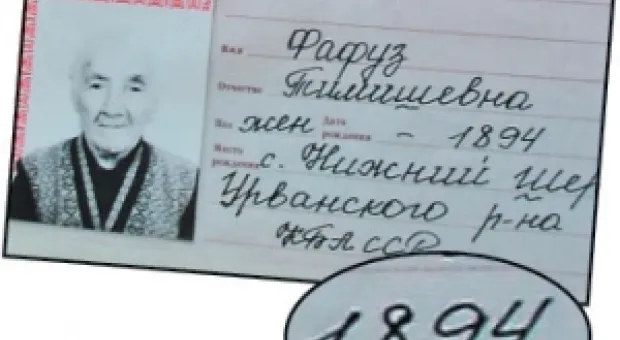 Имя Фафуз
Отчество Тимишевна
Пол жен Дата рождения - 1894
Место рождения с. Нижний Чер
Урванского р-на
КБАССР
1894